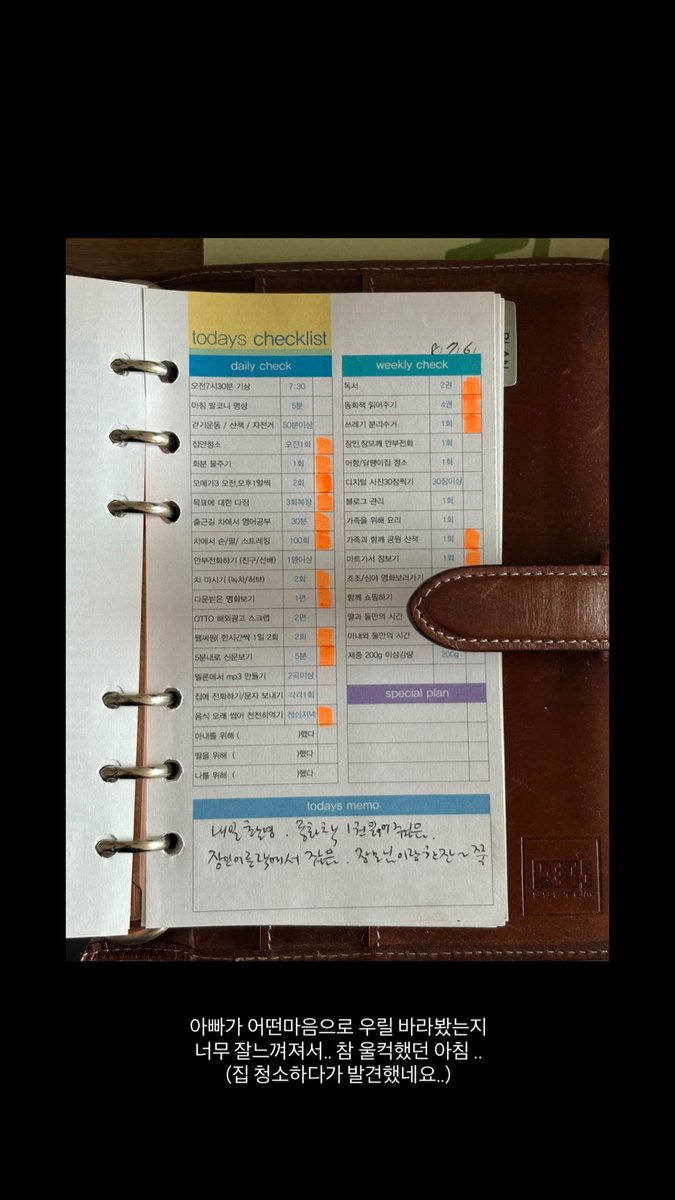 todays checklist
8/7/6/
PLAN
daily check
오전7시30분 기상 7:30
아침 발코니 명상 5분
걷기운동 / 산책 / 자전거 50분이상
집안청소 오전1회
화분 물주기 1회
오메가3 오전,오후1알씩 2회
목표에 대한 다짐 3회복창
출근길 차에서 영어공부 30분
차에서 손/팔/ 스트레칭 100회
안부전화하기 (친구/선배) 1명이상
차 마시기 (녹차/허브) 2회
다운받은 영화보기 1편
OTTO 해외광고 스크랩 2편
웹써핑( 한시간씩 1일 2회 2회
5분내로 신문보기 5분
멜론에서 mp3 만들기 2곡이상
집에 전화하기/문자 보내기 각각1회
음식 오래 씹어 천천히먹기 점심저녁
아내를 위해 ( )했다
딸을 위해 ( )했다
나를 위해 ( )했다
weekly check
독서 2권
동화책 읽어주기 4권
쓰레기 분리수거 1회
장인,장모께 안부전화 1회
어항/달팽이집 청소 1회
디지털 사진30장찍기 30장이상
블로그 관리 1회
가족을 위해 요리 1회
가족과 함께 공원 산책 1회
마트가서 장보기 1회
조조/심야 영화보러가기
함께 쇼핑하기
딸과 둘만의 시간
아내와 둘만의 시간
체중 200g 이상감량 200g
special plan
todays memo
내일 촬영. 동화책 1권 읽어 줬음.
장인어른댁에서 잤음. 장모님이랑 한잔~ 쭉
아빠가 어떤마음으로 우릴 바라봤는지
너무 잘느껴져서.. 참 울컥했던 아침 ..
(집 청소하다가 발견했네요..)